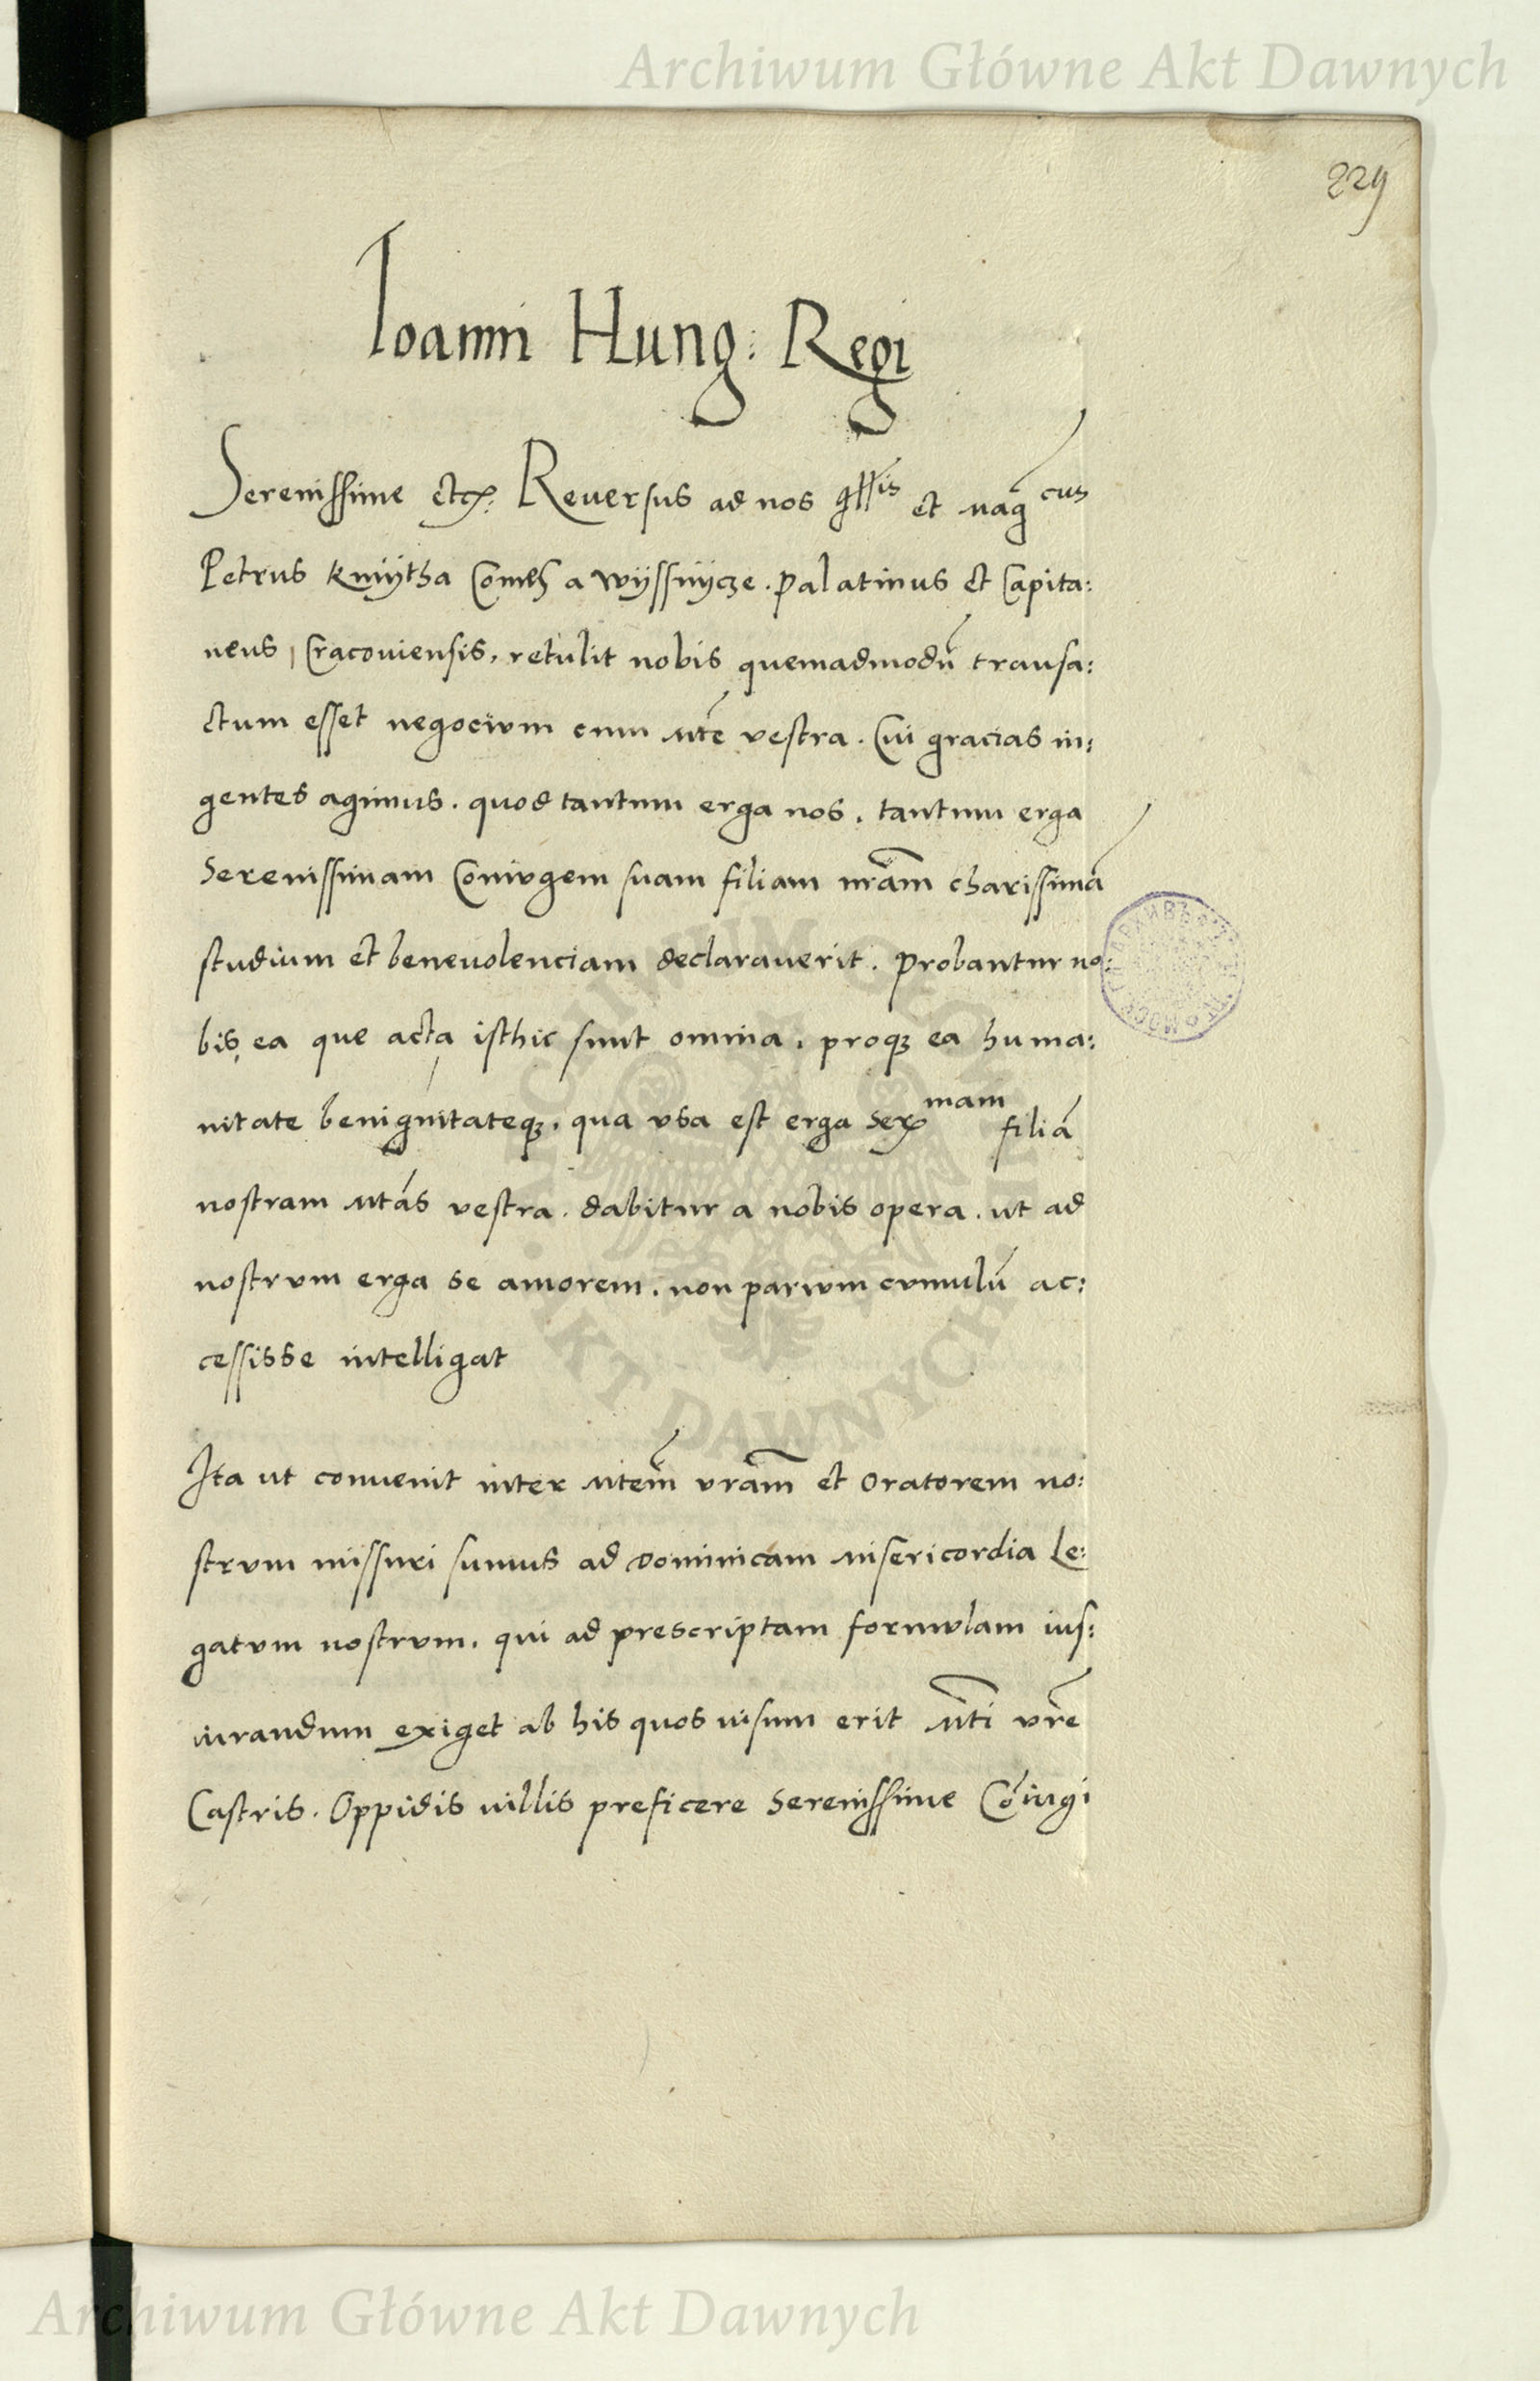 Archiwum Główne Akt Dawnych
229
Ioanni Hung: Regi
Serenissime etc. Reuersus ad nos et Mag cus
Petrus Kmÿtha Comes a Wÿssnÿcze. Palatinus et Capita:
neus Cracouiensis, retulit nobis quemadmodũ transa:
ctum esset negocium cum Mte vestra. Cui gracias in:
gentes agimus. quod tantum erga nos, tantum erga
Serenissimam Coniugem suam filiam nram charissimã
studium et beneuolenciam declarauerit. Probantur no:
bis ea que acta isthic sunt omnia, proqz ea huma:
nitate benignitateqz, qua vsa est erga Ser mam filiã
nostram Mtas vestra. dabitur a nobis opera. ut ad
nostrum erga se amorem, non parum cumulũ ac:
cessisse intelligat
Ita ut conuenit inter Mtem vram et Oratorem no:
strum missuri sumus ad Dominicam Misericordia Le:
gatum nostrum, qui ad prescriptam formulam ius:
iurandum exiget ab his quos uisum erit Mti vre
Castris. Oppidis uillis preficere Serenissime Cõiugi
Archiwum Główne Akt Dawnych